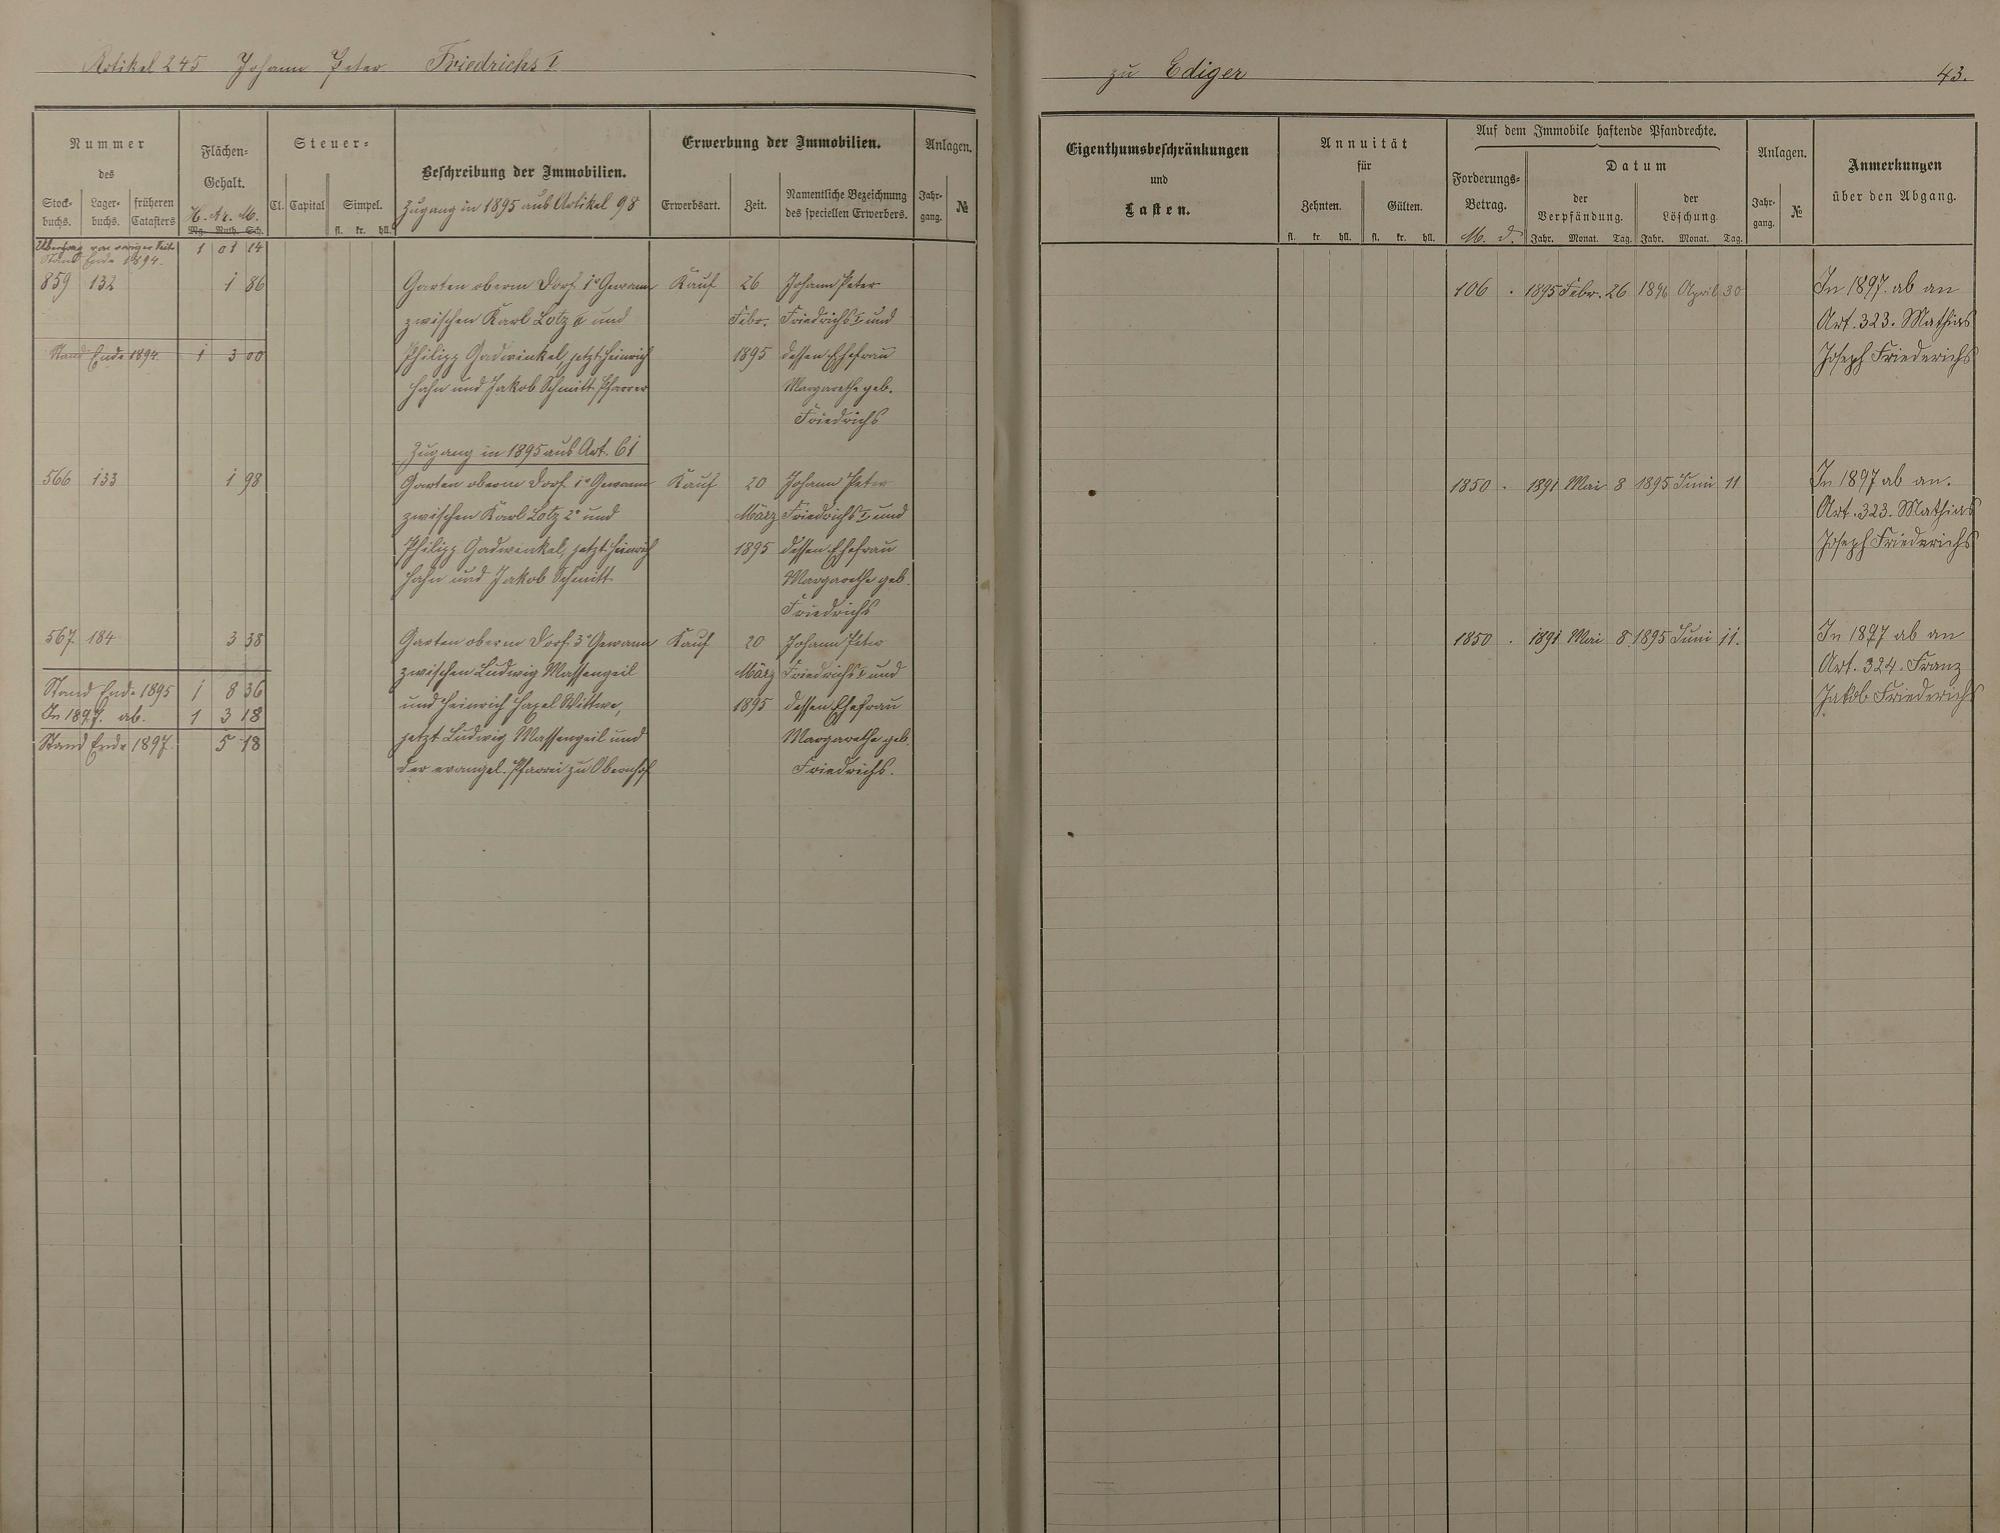 Artikel 245 Johann Peter Friedrichs I
zu Ediger
43.
Nummer
des
Stock-
buchs.
Lager-
buchs.
früheren
Catasters
Flächen-
Gehalt.
H. Ar. M.
Mg. Ruth. Sch.
Steuer-
Cl.
Capital
Simpel.
fl. kr. hll.
Beschreibung der Immobilien.
Zugang in 1895 aus Artikel 98
Erwerbung der Immobilien.
Erwerbsart.
Zeit.
Namentliche Bezeichnung
des speciellen Erwerbers.
Anlagen.
Jahr-
gang.
№
Eigenthumsbeschränkungen
und
Lasten.
Annuität
für
Zehnten.
Gülten.
fl. kr. hll. fl. kr. hll.
Auf dem Immobile haftende Pfandrechte.
Forderungs-
Betrag.
M. d.
Datum
der
Verpfändung.
der
Löschung.
Jahr. Monat. Tag. Jahr. Monat. Tag.
Anlagen.
Jahr-
gang.
№
Anmerkungen
über den Abgang.
Übertrag von voriger Seite
Stand Ende 1894. 1 01 14
859 132 1 86 Garten oberm Dorf 1r Gewann Kauf 26 Johann Peter
zwischen Karl Lotz und Febr. Friedrichs I und
Stand Ende 1894. 1 3 00 Philipp Gadwinkel, jetzt Heinrich 1895 dessen Ehefrau
Hahn und Jakob Schmitt Pfarrer Margarethe geb.
Friedrichs
106 . 1895 Febr. 26 1896 April 30
In 1897. ab an
Art. 323. Mathias
Joseph Friederichs
Zugang in 1895 aus Art. 61
566 133 1 98 Garten oberm Dorf 1r Gewann Kauf 20 Johann Peter
zwischen Karl Lotz 2r und März Friedrichs I und
Philipp Gadwinkel, jetzt Heinrich 1895 dessen Ehefrau
Hahn und Jakob Schmitt Margarethe geb.
Friedrichs
1850 . 1891 Mai 8 1895 Juni 11
In 1897 ab an.
Art. 323. Mathias
Joseph Friederichs
567 184 3 38 Garten oberm Dorf 3r Gewann Kauf 20 Johann Peter
zwischen Ludwig Massengeil März Friedrichs I und
Stand Ende 1895 1 8 36 und Heinrich Hagel Wittwe, 1895 dessen Ehefrau
In 1897. ab. 1 3 18
Stand Ende 1897. 5 18 jetzt Ludwig Massengeil und Margarethe geb.
der evangel. Pfarrei zu Obernhof Friedrichs.
1850 . 1891 Mai 8. 1895 Juni 11.
In 1897 ab an
Art. 324. Franz
Jakob Friederichs